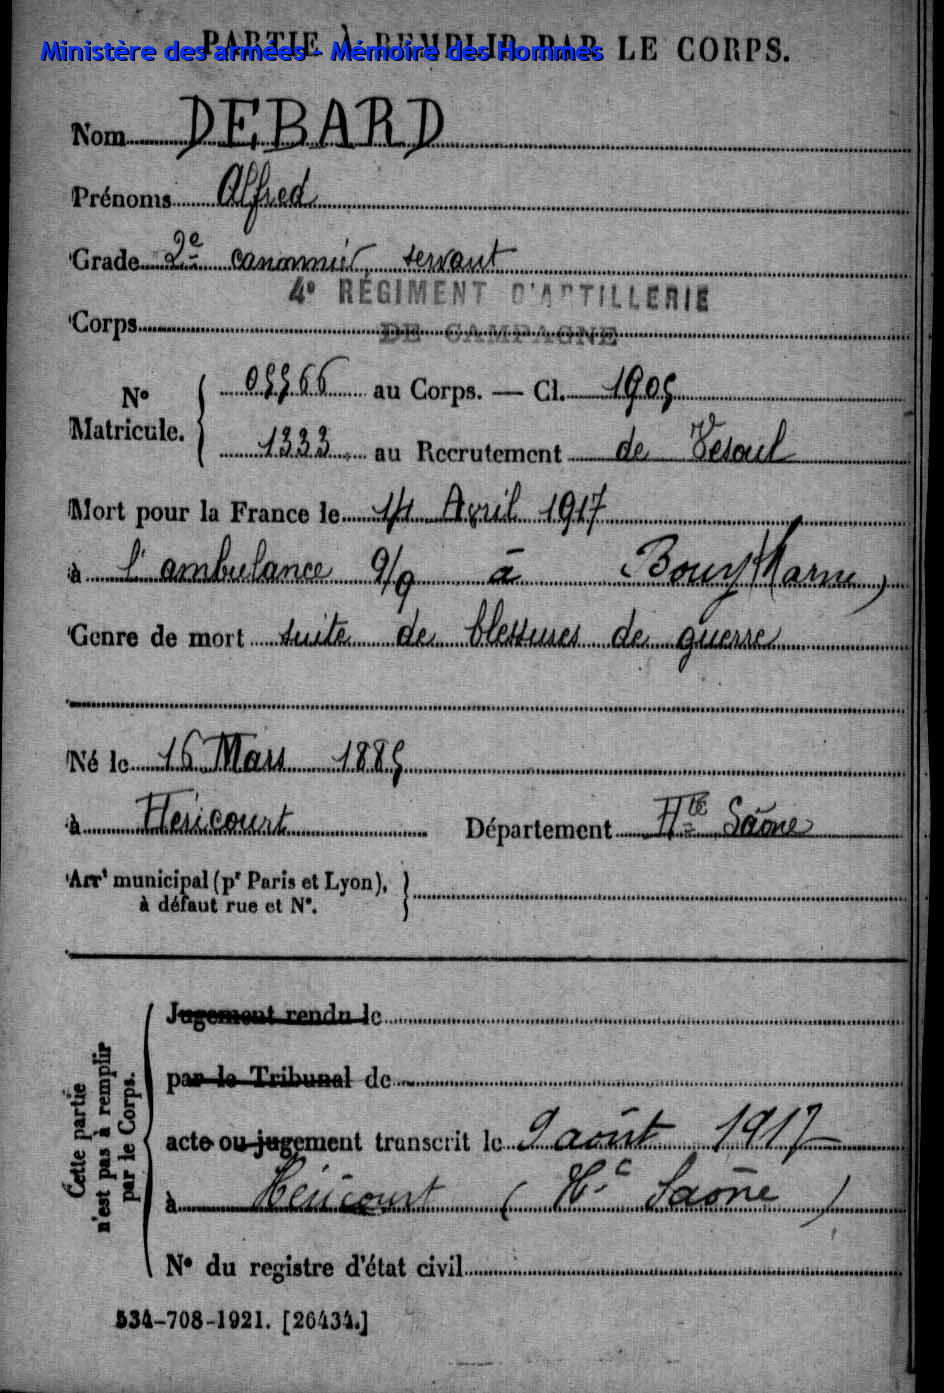 PARTIE À REMPLIR PAR LE CORPS.
Ministère des armées - Mémoire des Hommes
Nom DEBARD
Prénoms Alfred
Grade 2e canonnier servant
4e RÉGIMENT D'ARTILLERIE
Corps DE CAMPAGNE
No Matricule. { 05566 au Corps. — Cl. 1905
1333 au Recrutement de Vesoul
Mort pour la France le 14 Avril 1917
à l'ambulance 9/9 à Bouy (Marne)
Genre de mort suite de blessures de guerre
Né le 16 Mars 1885
à Héricourt Département Hte Saône
Arrt municipal (pr Paris et Lyon), }
à défaut rue et No.
Cette partie n'est pas à remplir par le Corps.
Jugement rendu le
par le Tribunal de
acte ou jugement transcrit le 9 août 1917
à Héricourt (Hte Saône)
No du registre d'état civil
534-708-1921. [26434.]